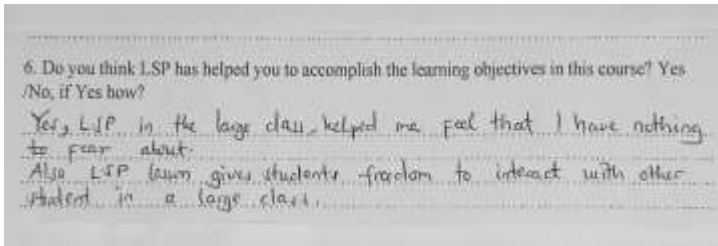 6. Do you think LSP has helped you to accomplish the learning objectives in this course? Yes
/No, if Yes how?
Yes, LSP in the large class helped me feel that I have nothing
to fear about.
Also LSP gives students freedom to interact with other
student in a large class.